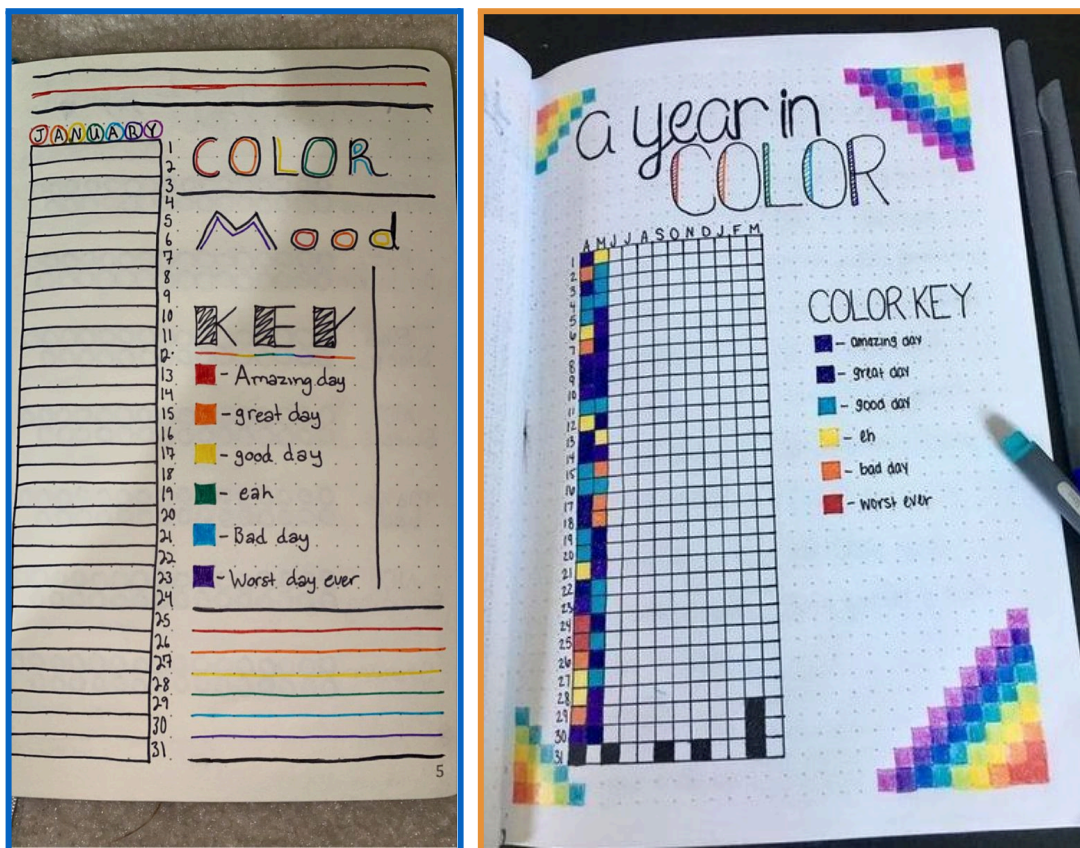 JANUARY
1
2
3
4
5
6
7
8
9
10
11
12
13
14
15
16
17
18
19
20
21
22
23
24
25
26
27
28
29
30
31
COLOR
Mood
KEY
- Amazing day
- great day
- good day
- eah
- Bad day
- Worst day ever
5
a year in
COLOR
A M J J A S O N D J F M
1
2
3
4
5
6
7
8
9
10
11
12
13
14
15
16
17
18
19
20
21
22
23
24
25
26
27
28
29
30
31
COLOR KEY
- amazing day
- great day
- good day
- eh
- bad day
- worst ever